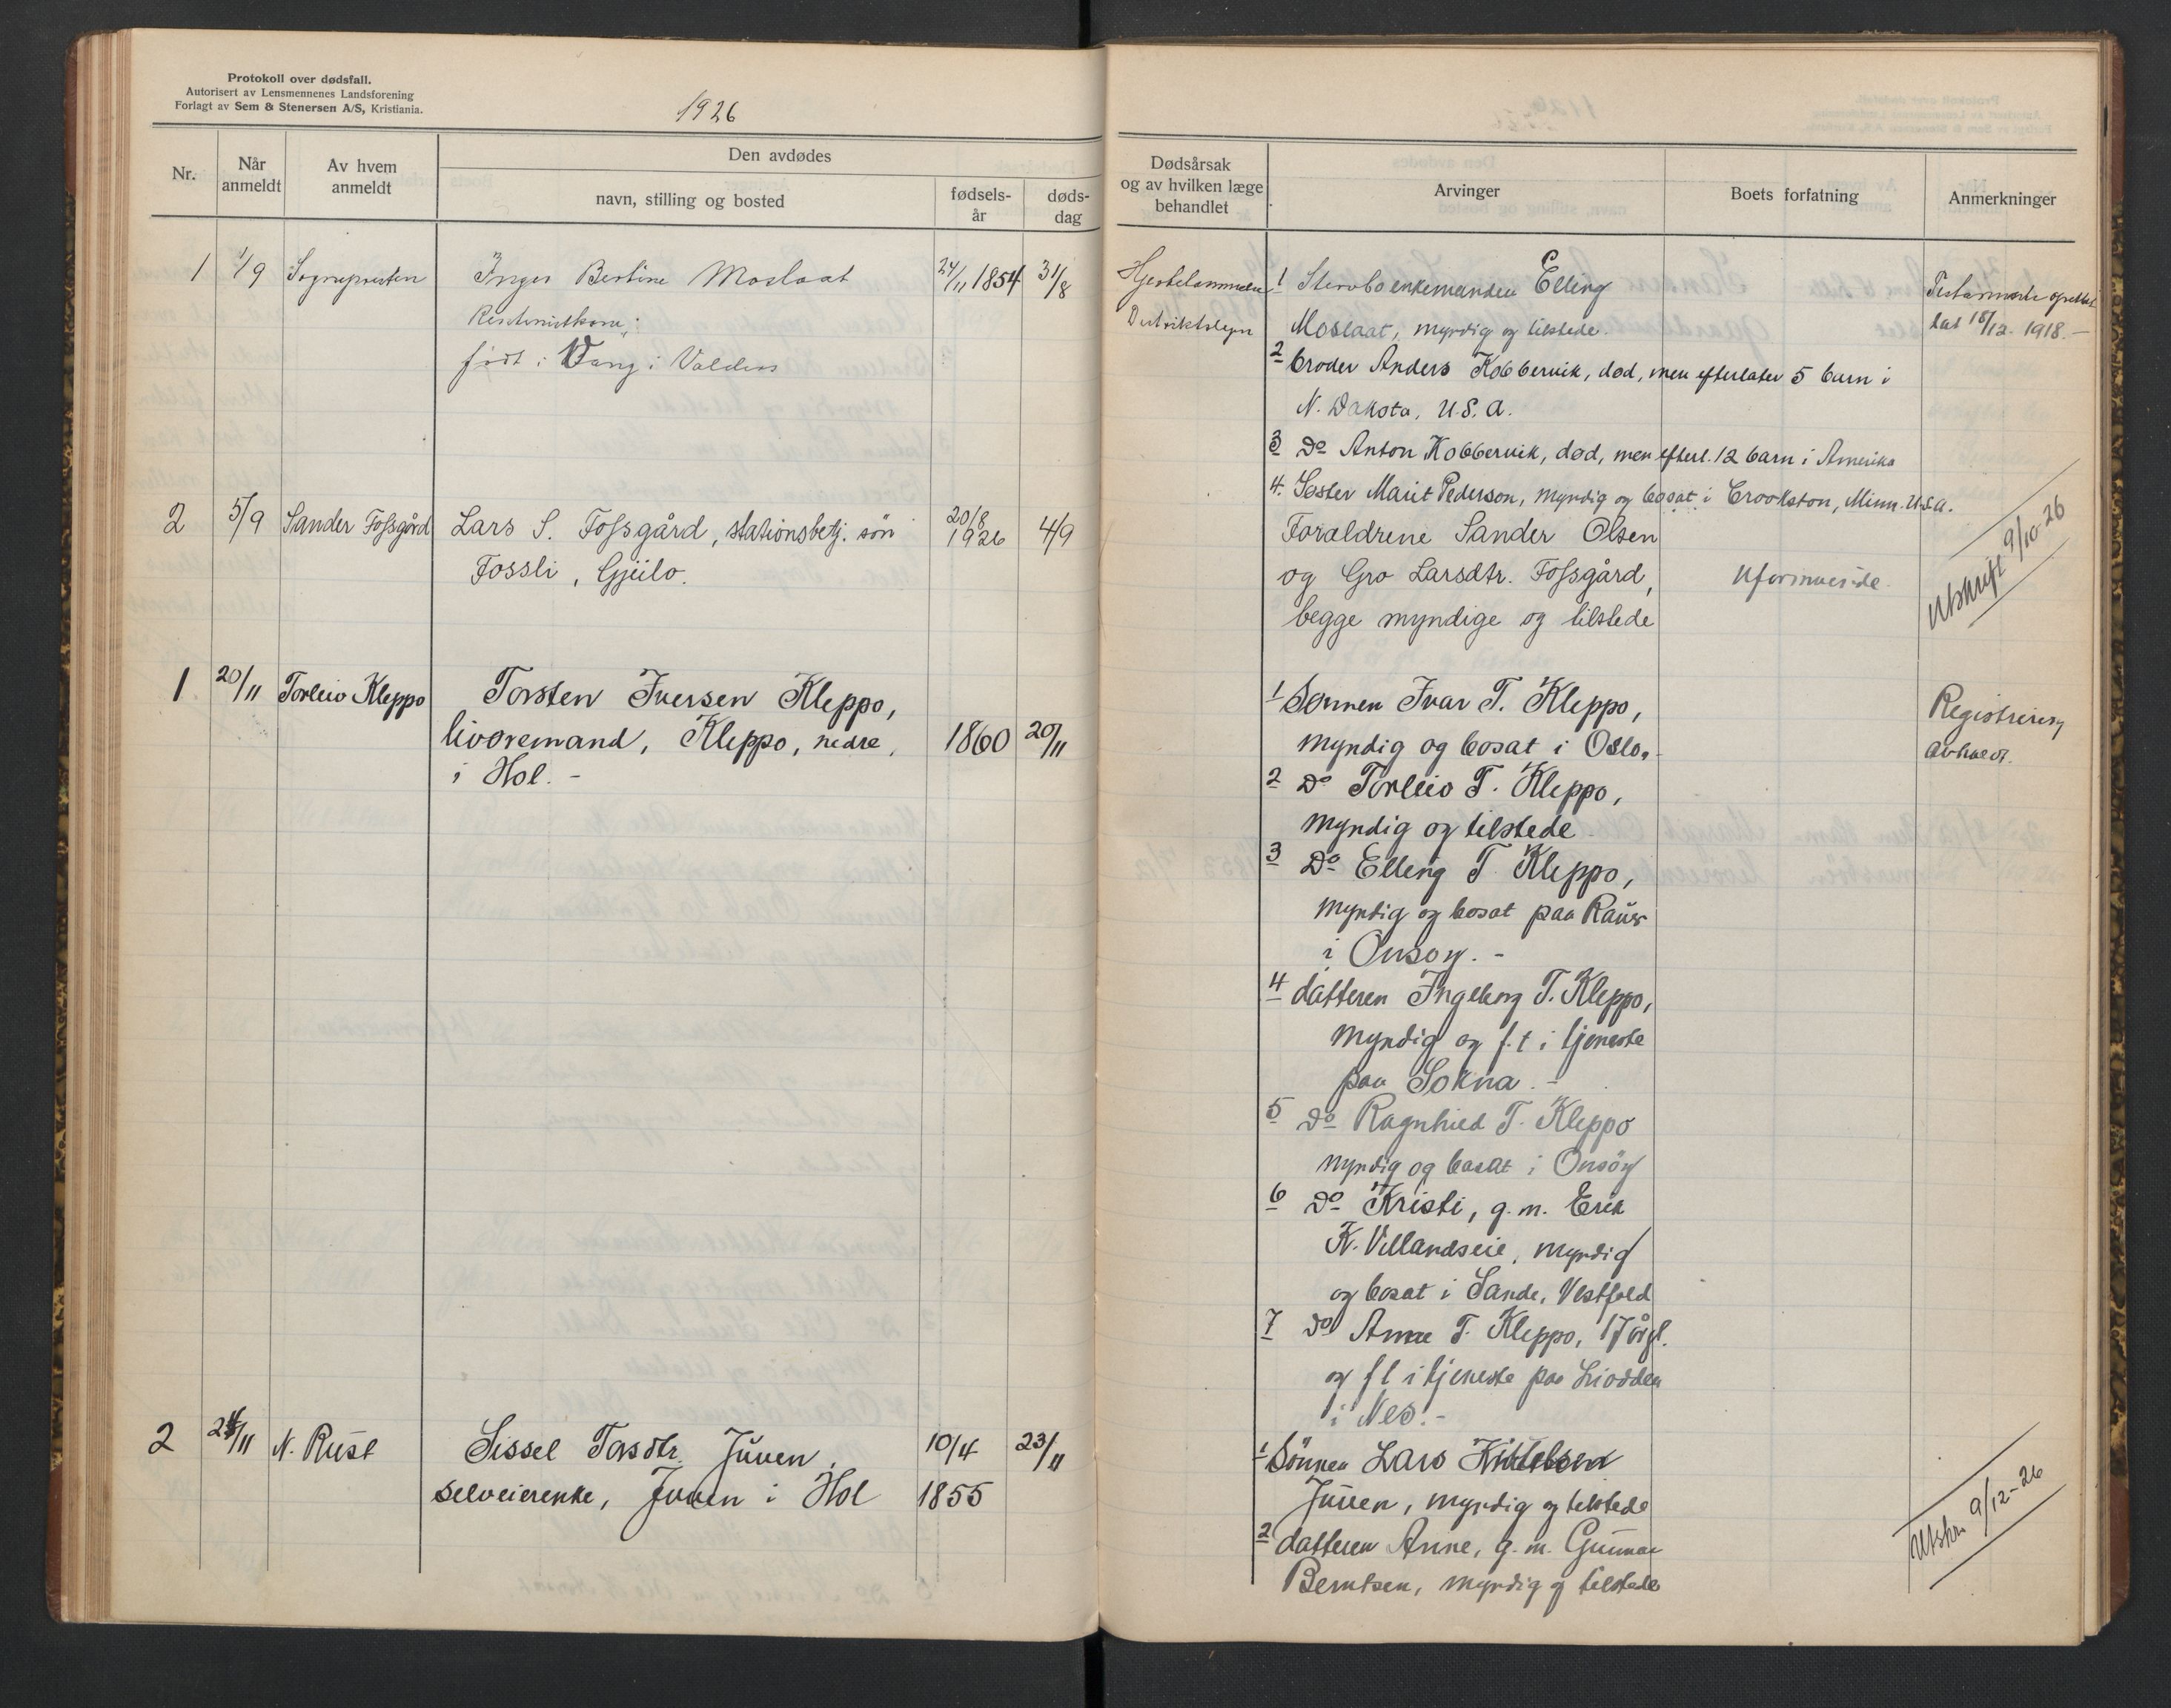 Protokoll over dødsfall.
Autorisert av Lensmennenes Landsforening
Forlagt av Sem & Stenersen A/S, Kristiania.
1926
Nr.
Når anmeldt
Av hvem anmeldt
Den avdødes
navn, stilling og bosted
fødsels-år
døds-dag
1 1/9 Sognepresten Inger Bertine Moslaat 24/11 1854 31/8
født i Vang i Valdres
2 5/9 Sander Fossgård Lars S. Fossgård, stationsbetj. søn 20/8 1926 4/9
Fossli, Gjeilo.
1 20/11 Torleiv Kleppo Torsten Iversen Kleppo,
livøremand, Kleppo, nedre, 1860 20/11
i Hol. -
2 24/11 N. Rust Sissel Torsdtr. Juven, 10/4 23/11
selveierenke, Juven i Hol 1855
Dødsårsak
og av hvilken læge
behandlet
Arvinger
Boets forfatning
Anmerkninger
Hjertelammelse
Distriktslegen
1 Stervboenkemanden Elling
Moslaat, myndig og tilstede.
2 broder Anders Kobbervik, død, men efterlater 5 barn i
N. Dakota, U.S.A.
3 Do Anton Kobbervik, død, men efterl. 12 barn i Amerika
4. Søster Marit Pederson, myndig og bosat i Crookston, Minn. U.S.A.
Testamente oprettet
dat 18/12. 1918. -
Foraldrene Sander Olsen
og Gro Larsdtr. Fossgård,
begge myndige og tilstede
Uformuende.
Utskrift 9/10 26
1 Sønnen Ivar T. Kleppo,
myndig og bosat i Oslo. -
2 Do Torleiv T. Kleppo,
myndig og tilstede.
3 Do Elling T. Kleppo,
myndig og bosat paa Rauer
i Onsøy. -
4 datteren Ingeborg T. Kleppo,
myndig og f.t i tjeneste
paa Sokna. -
5 Do Ragnhild T. Kleppo
myndig og bosat i Onsøy
6 Do Kristi, g.m. Erik
K. Villandseie, myndig
og bosat i Sande, Vestfold
7 do Anne T. Kleppo, 17 årgl.
og f t i tjeneste paa Liodden
i Nes. -
Registrering
avholdt.
1 Sönnen Lars Kittelsen
Juven, myndig og tilstede
2 datteren Anne, g.m. Gunnar
Berntsen, myndig og tilstede
Utskr. 9/12-26